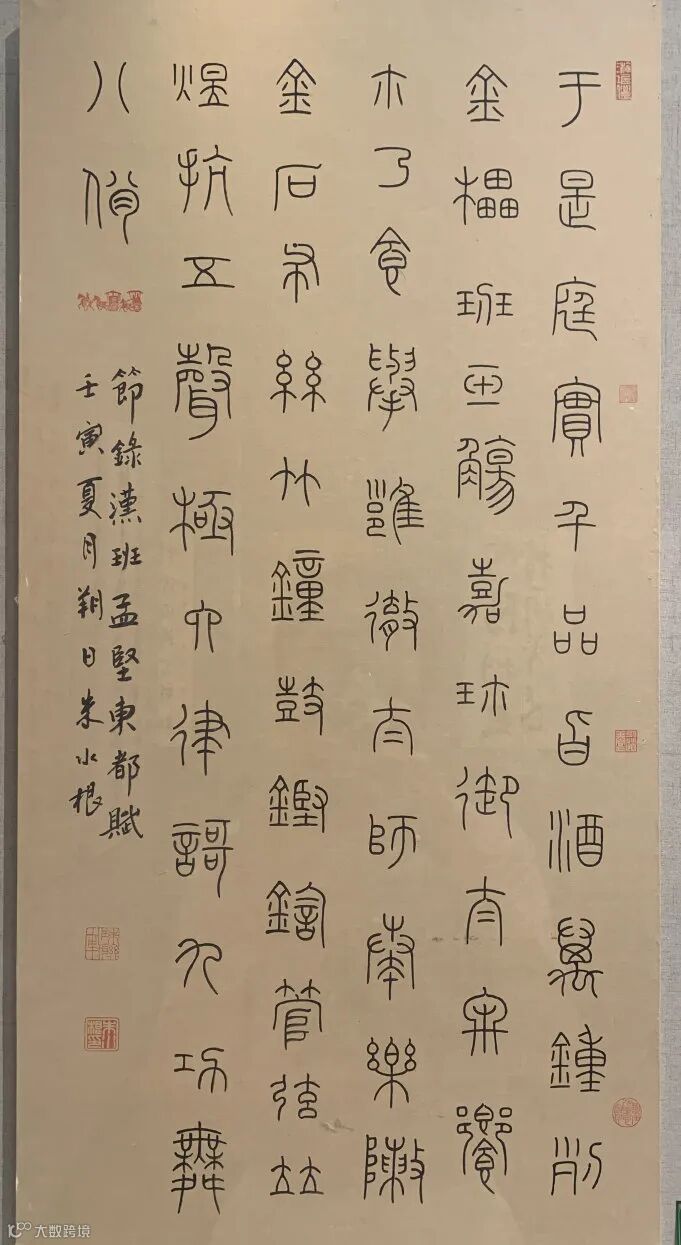 于是庭實千品旨酒萬鍾列
金櫑班玉觴嘉珍御太牢饗
尒乃食舉雝徹太師奏樂敶
金石布絲竹鐘鼓鏗鍧管弦竝
煜抗五聲極六律謌九功舞
八佾
節錄漢班孟堅東都賦
壬寅夏月朔日朱水根
大数跨境